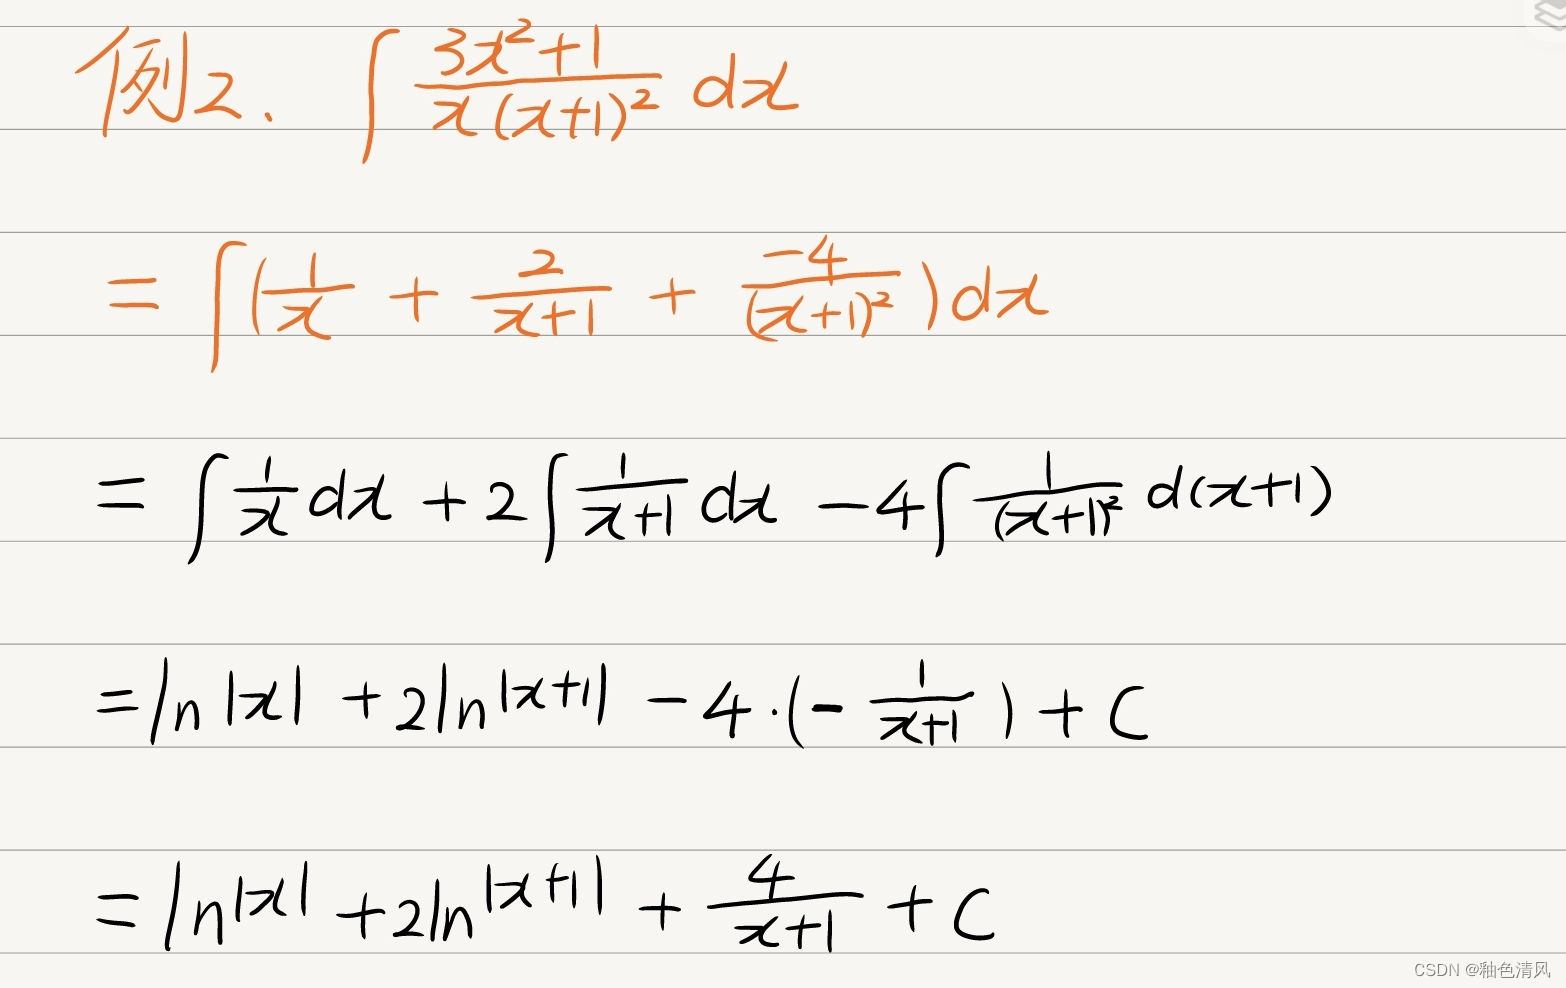 例2. ∫ (3x²+1)/(x(x+1)²) dx
= ∫ (1/x + 2/(x+1) + (-4)/(x+1)²) dx
= ∫ 1/x dx + 2 ∫ 1/(x+1) dx - 4 ∫ 1/(x+1)² d(x+1)
= ln|x| + 2ln|x+1| - 4·(- 1/(x+1)) + C
= ln|x| + 2ln|x+1| + 4/(x+1) + C
CSDN @釉色清风